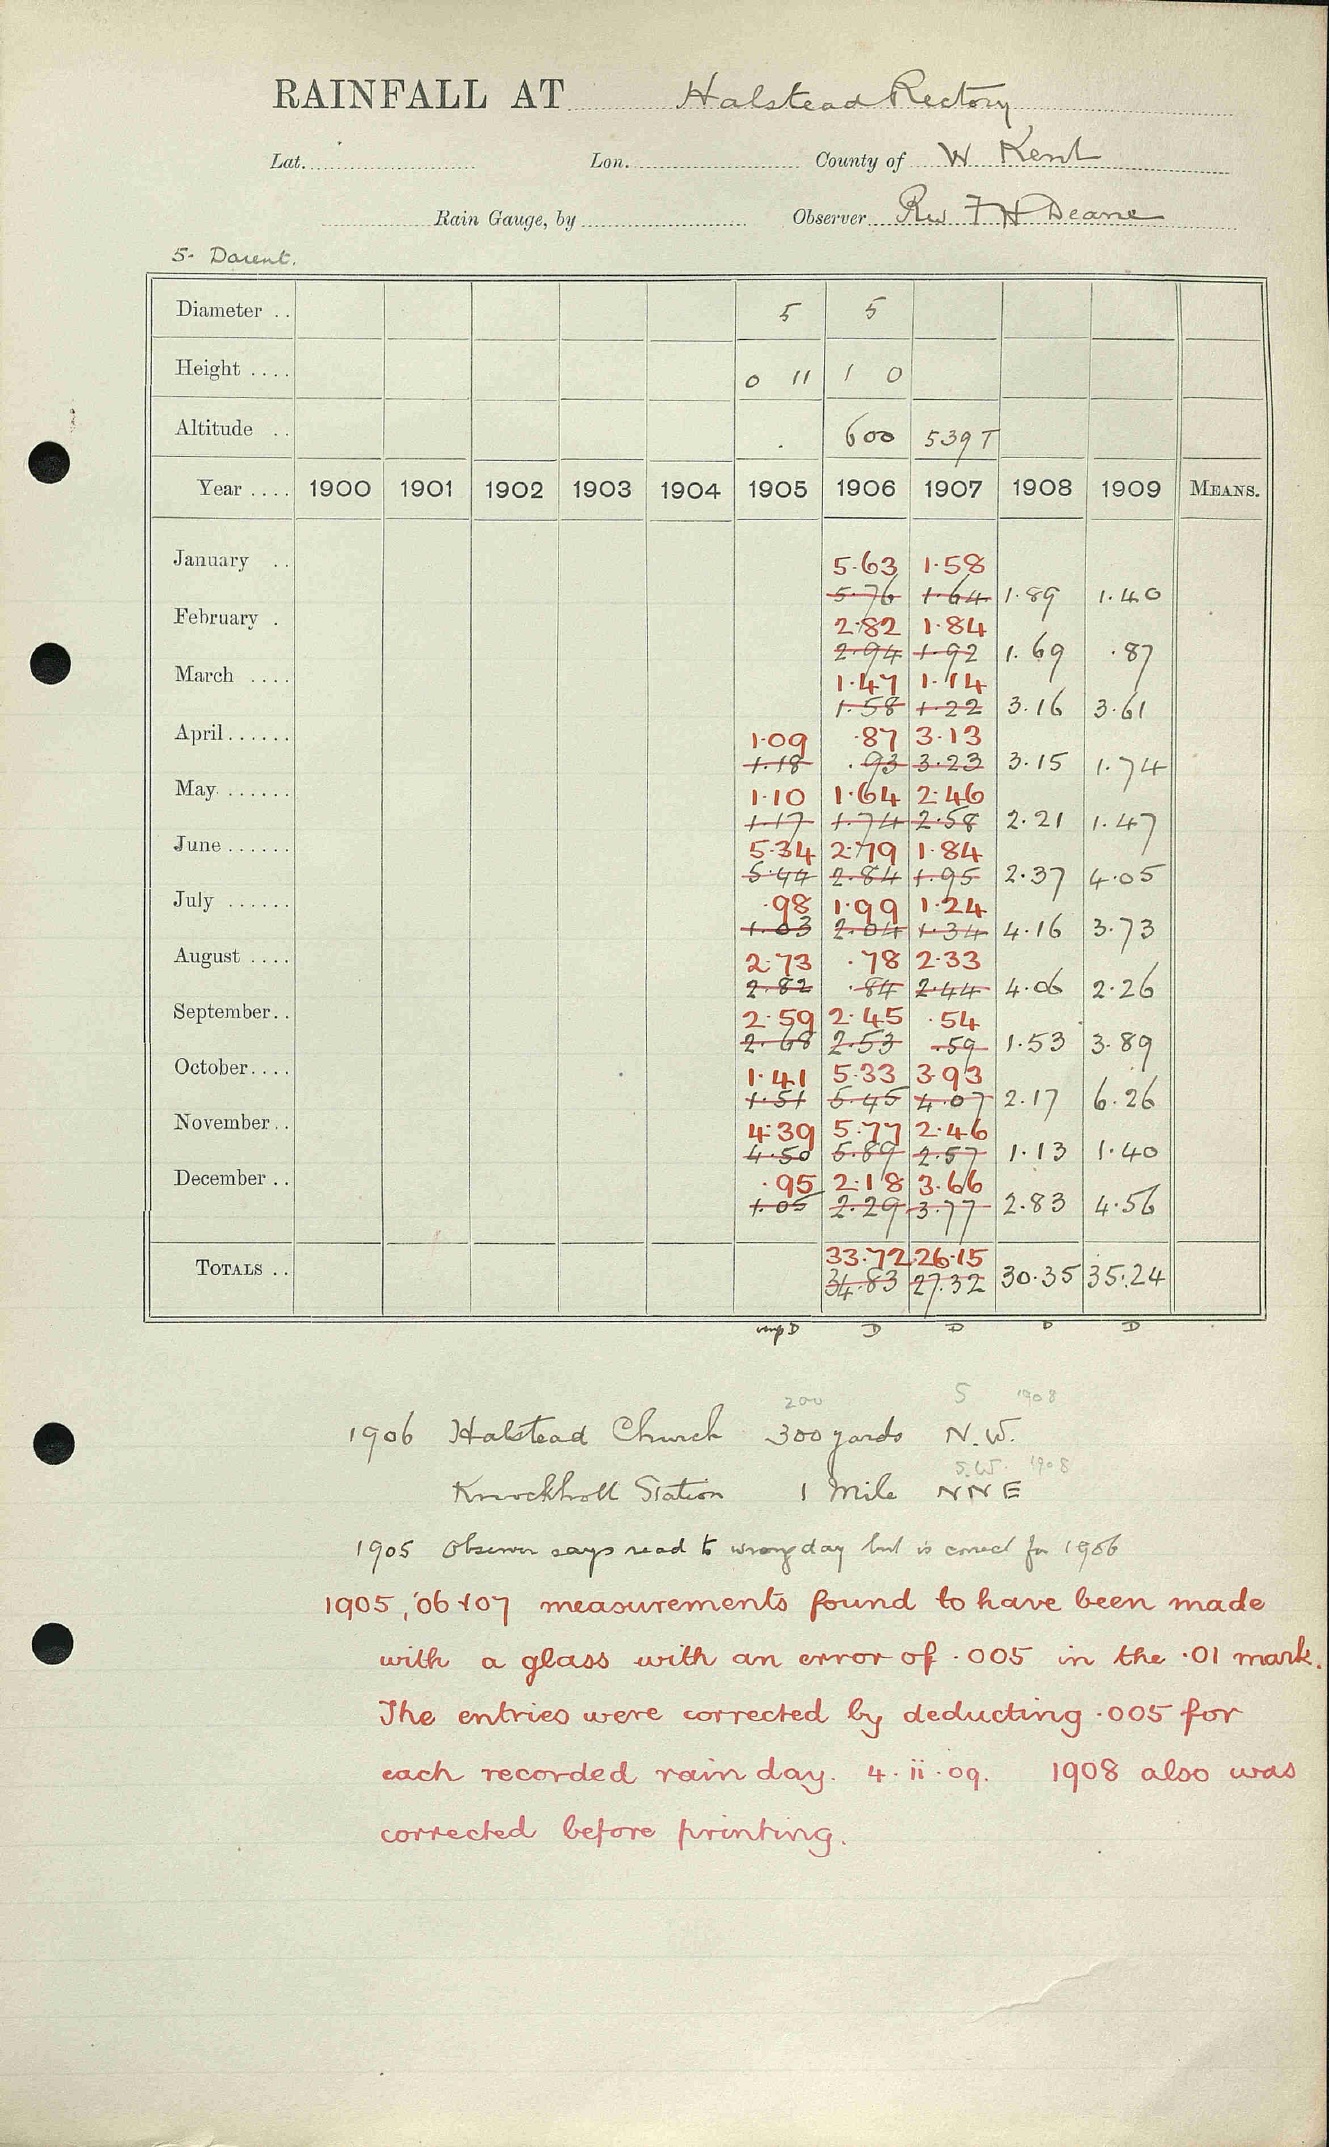 RAINFALL AT Halstead Rectory
Lat. Lon. County of W Kent
Rain Gauge, by Observer Rev F H Deane
5. Darent.
Diameter .. 5 5
Height .... 0 11 1 0
Altitude .. 600 539 T
Year .... 1900 1901 1902 1903 1904 1905 1906 1907 1908 1909 MEANS.
January .. 5.63 1.58
5.76 1.64 1.89 1.40
February . 2.82 1.84
2.94 1.92 1.69 .87
March .... 1.47 1.14
1.58 1.22 3.16 3.61
April ...... 1.09 .87 3.13
1.18 .93 3.23 3.15 1.74
May ...... 1.10 1.64 2.46
1.17 1.74 2.58 2.21 1.47
June ...... 5.34 2.79 1.84
5.44 2.84 1.95 2.37 4.05
July ...... .98 1.99 1.24
1.03 2.04 1.34 4.16 3.73
August .... 2.73 .78 2.33
2.82 .84 2.44 4.06 2.26
September.. 2.59 2.45 .54
2.68 2.53 .59 1.53 3.89
October.... 1.41 5.33 3.93
1.51 5.45 4.07 2.17 6.26
November.. 4.39 5.77 2.46
4.50 5.89 2.57 1.13 1.40
December .. .95 2.18 3.66
1.05 2.29 3.77 2.83 4.56
33.72 26.15
TOTALS .. 34.83 27.32 30.35 35.24
D D D D D
200 S 1908
1906 Halstead Church 300 yards N.W.
S.W. 1908
Knockholt Station 1 Mile NNE
1905 Observer says read to wrong day but is correct for 1906
1905, '06 + 07 measurements found to have been made
with a glass with an error of .005 in the .01 mark.
The entries were corrected by deducting .005 for
each recorded rain day. 4.ii.09. 1908 also was
corrected before printing.